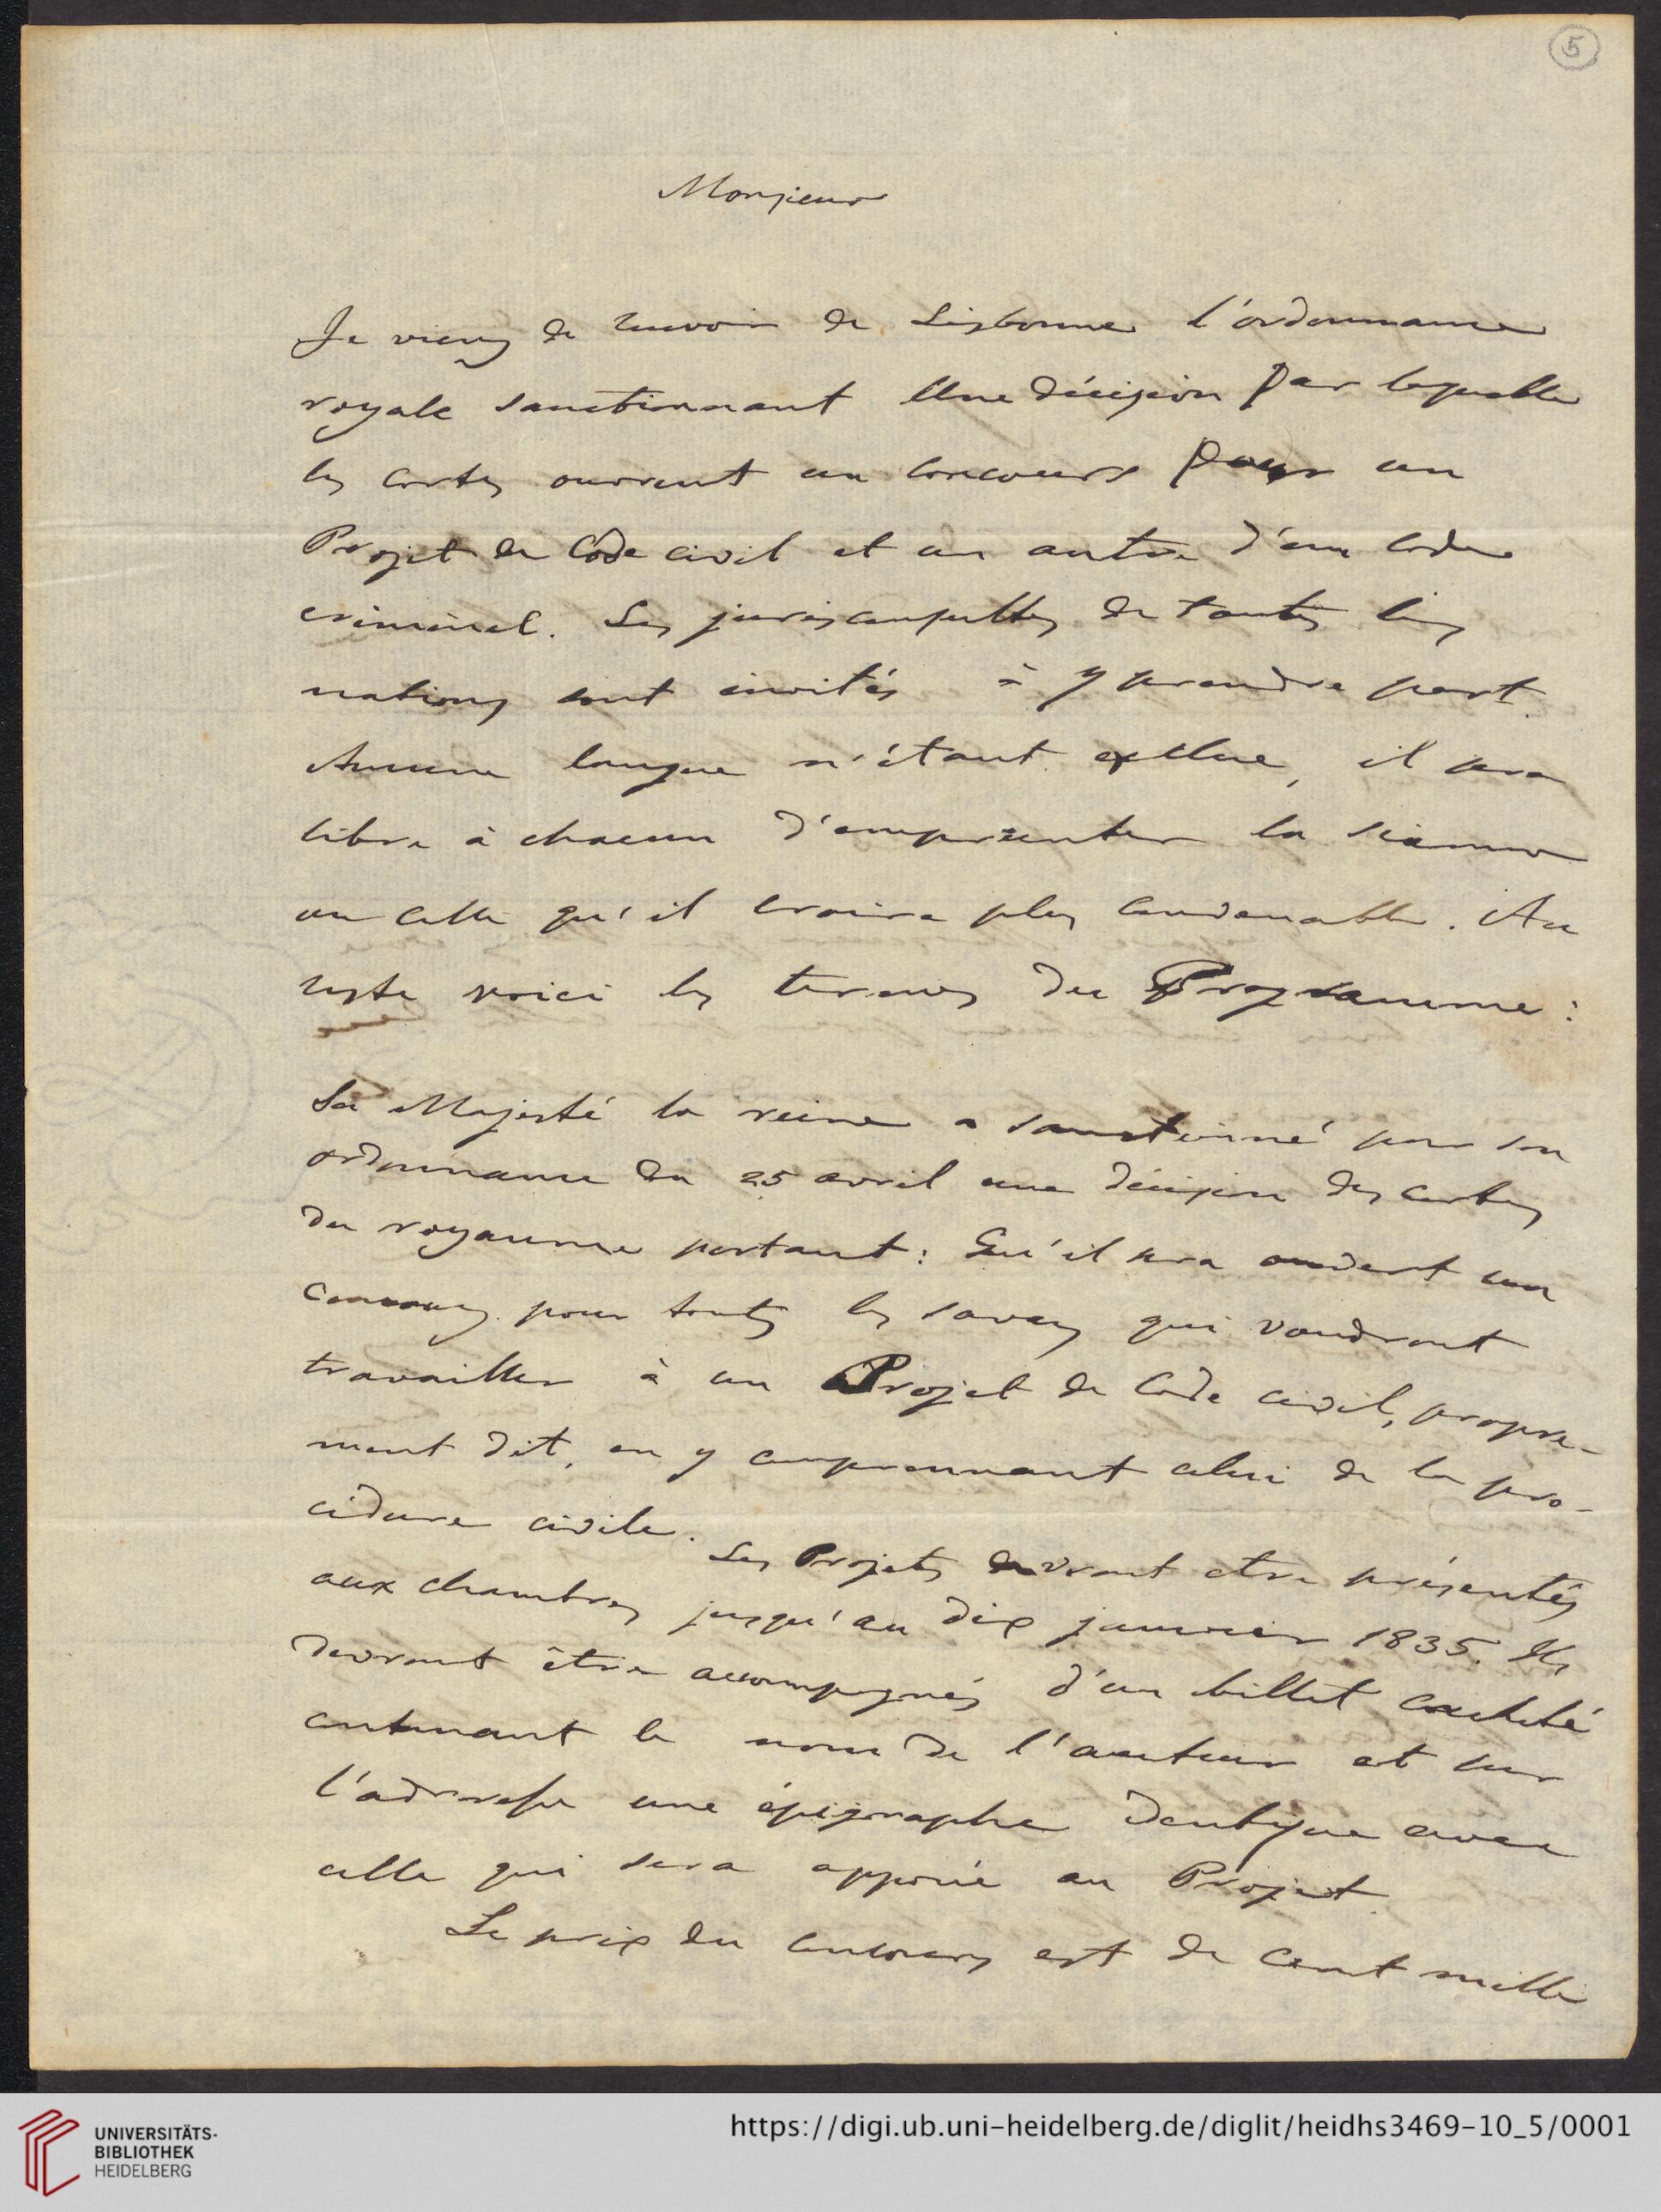 5
Monsieur
Je viens de recevoir de Lisbonne l'ordonnance
royale sanctionnant Une décision par laquelle
les cortes ouvrent un concours pour un
Projet de Code civil et un autre d'un code
criminel. Les jurisconsultes de toutes les
nations sont invités à y prendre part.
Aucune langue n'étant exclue, il sera
libre à chacun d'emprunter la sienne
ou celle qu'il croira plus convenable. Au
reste voici les termes du Programme:
Sa Majesté la reine a sanctionné par son
ordonnance du 25 avril une décision des cortes
du royaume portant: Qu'il sera ouvert un
concours pour touts les savans qui voudront
travailler à un Projet de Code civil, propre-
ment dit, en y comprennant celui de la pro-
cédure civile. Les Projets devront etre présentés
aux chambres jusqu'au dix janvier 1835. Ils
devront être accompagnés d'un billet cacheté
contenant le nom de l'auteur et sur
l'adresse une épigraphe identique avec
celle qui sera apposée au Projet.
Le prix du concours est de cent mille
UNIVERSITÄTS-
BIBLIOTHEK
HEIDELBERG
https://digi.ub.uni-heidelberg.de/diglit/heidhs3469-10_5/0001